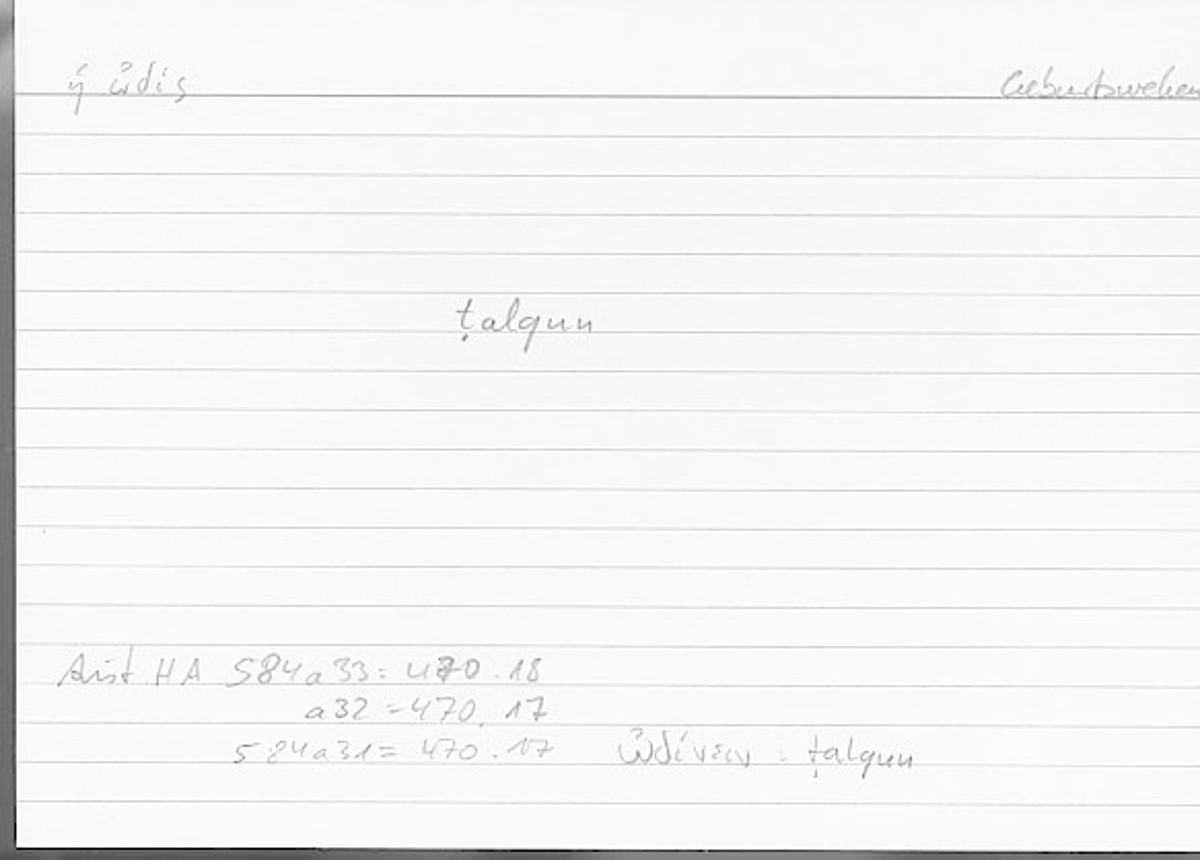 ἡ ὠδίς Geburtswehen
ṭalqun
Arist HA 584a33 = 470.18
a32 = 470.17
584a31 = 470.17 ὠδίνειν : ṭalqun